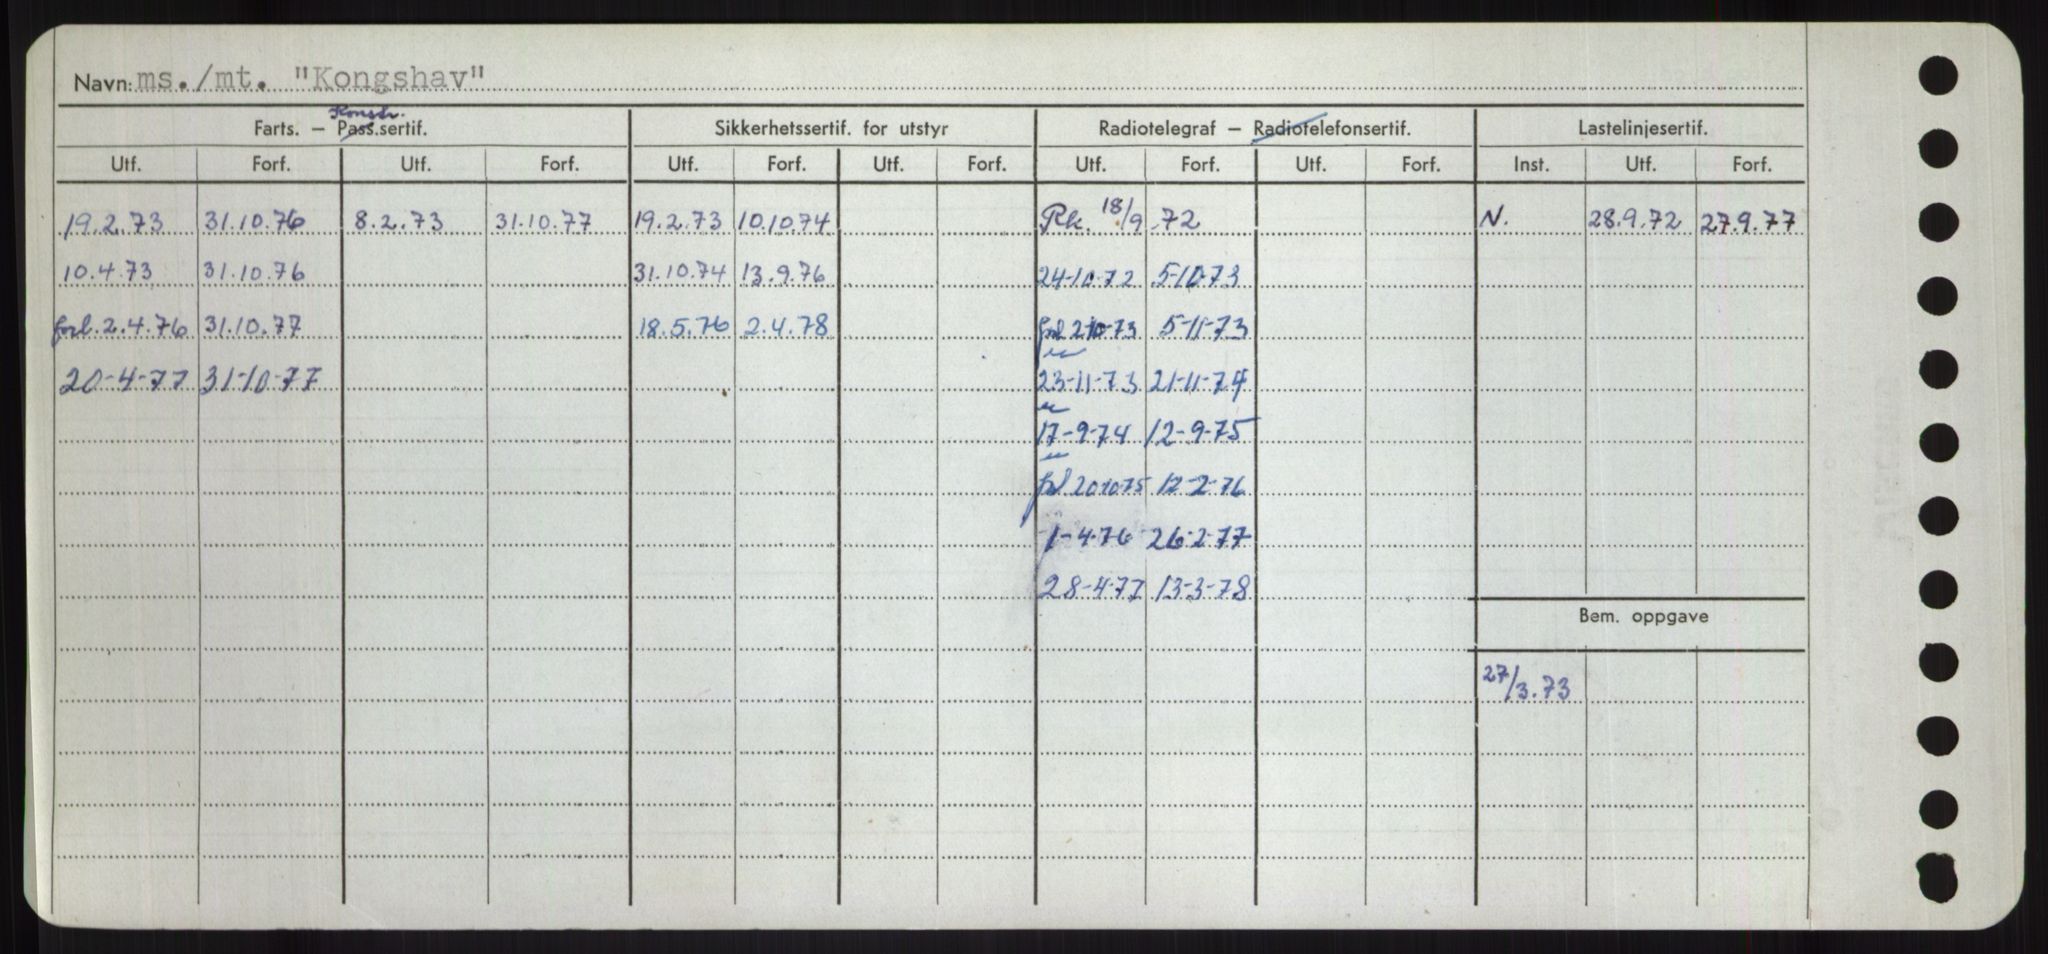 Navn: ms./mt. "Kongshav"
Konstr.
Farts. – Pass.sertif. Sikkerhetssertif. for utstyr Radiotelegraf – Radiotelefonsertif. Lastelinjesertif.
Utf. Forf. Utf. Forf. Utf. Forf. Utf. Forf. Utf. Forf. Utf. Forf. Inst. Utf. Forf.
19.2.73 31.10.76 8.2.73 31.10.77 19.2.73 10.10.74 Rk. 18/9 72 N. 28.9.72 27.9.77
10.4.73 31.10.76 31.10.74 13.9.76 24-10-72 5-10-73
forl. 2.4.76 31.10.77 18.5.76 2.4.78 2-10-73 5-11-73
20-4-77 31-10-77 23-11-73 21-11-74
17-9-74 12-9-75
20-10-75 12-2-76
1-4-76 26-2-77
28-4-77 13-3-78
Bem. oppgave
27/3.73